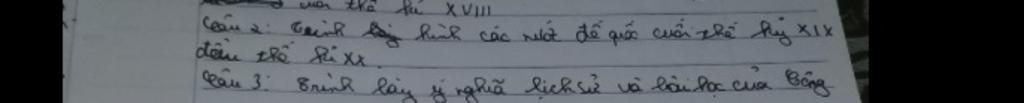 của thế kỉ XVIII
Câu 2: Trình hình các nước đế quốc cuối thế kỷ XIX
đầu thế kỉ XX.
Câu 3: Trình bày ý nghĩa lịch sử và bài học của Công